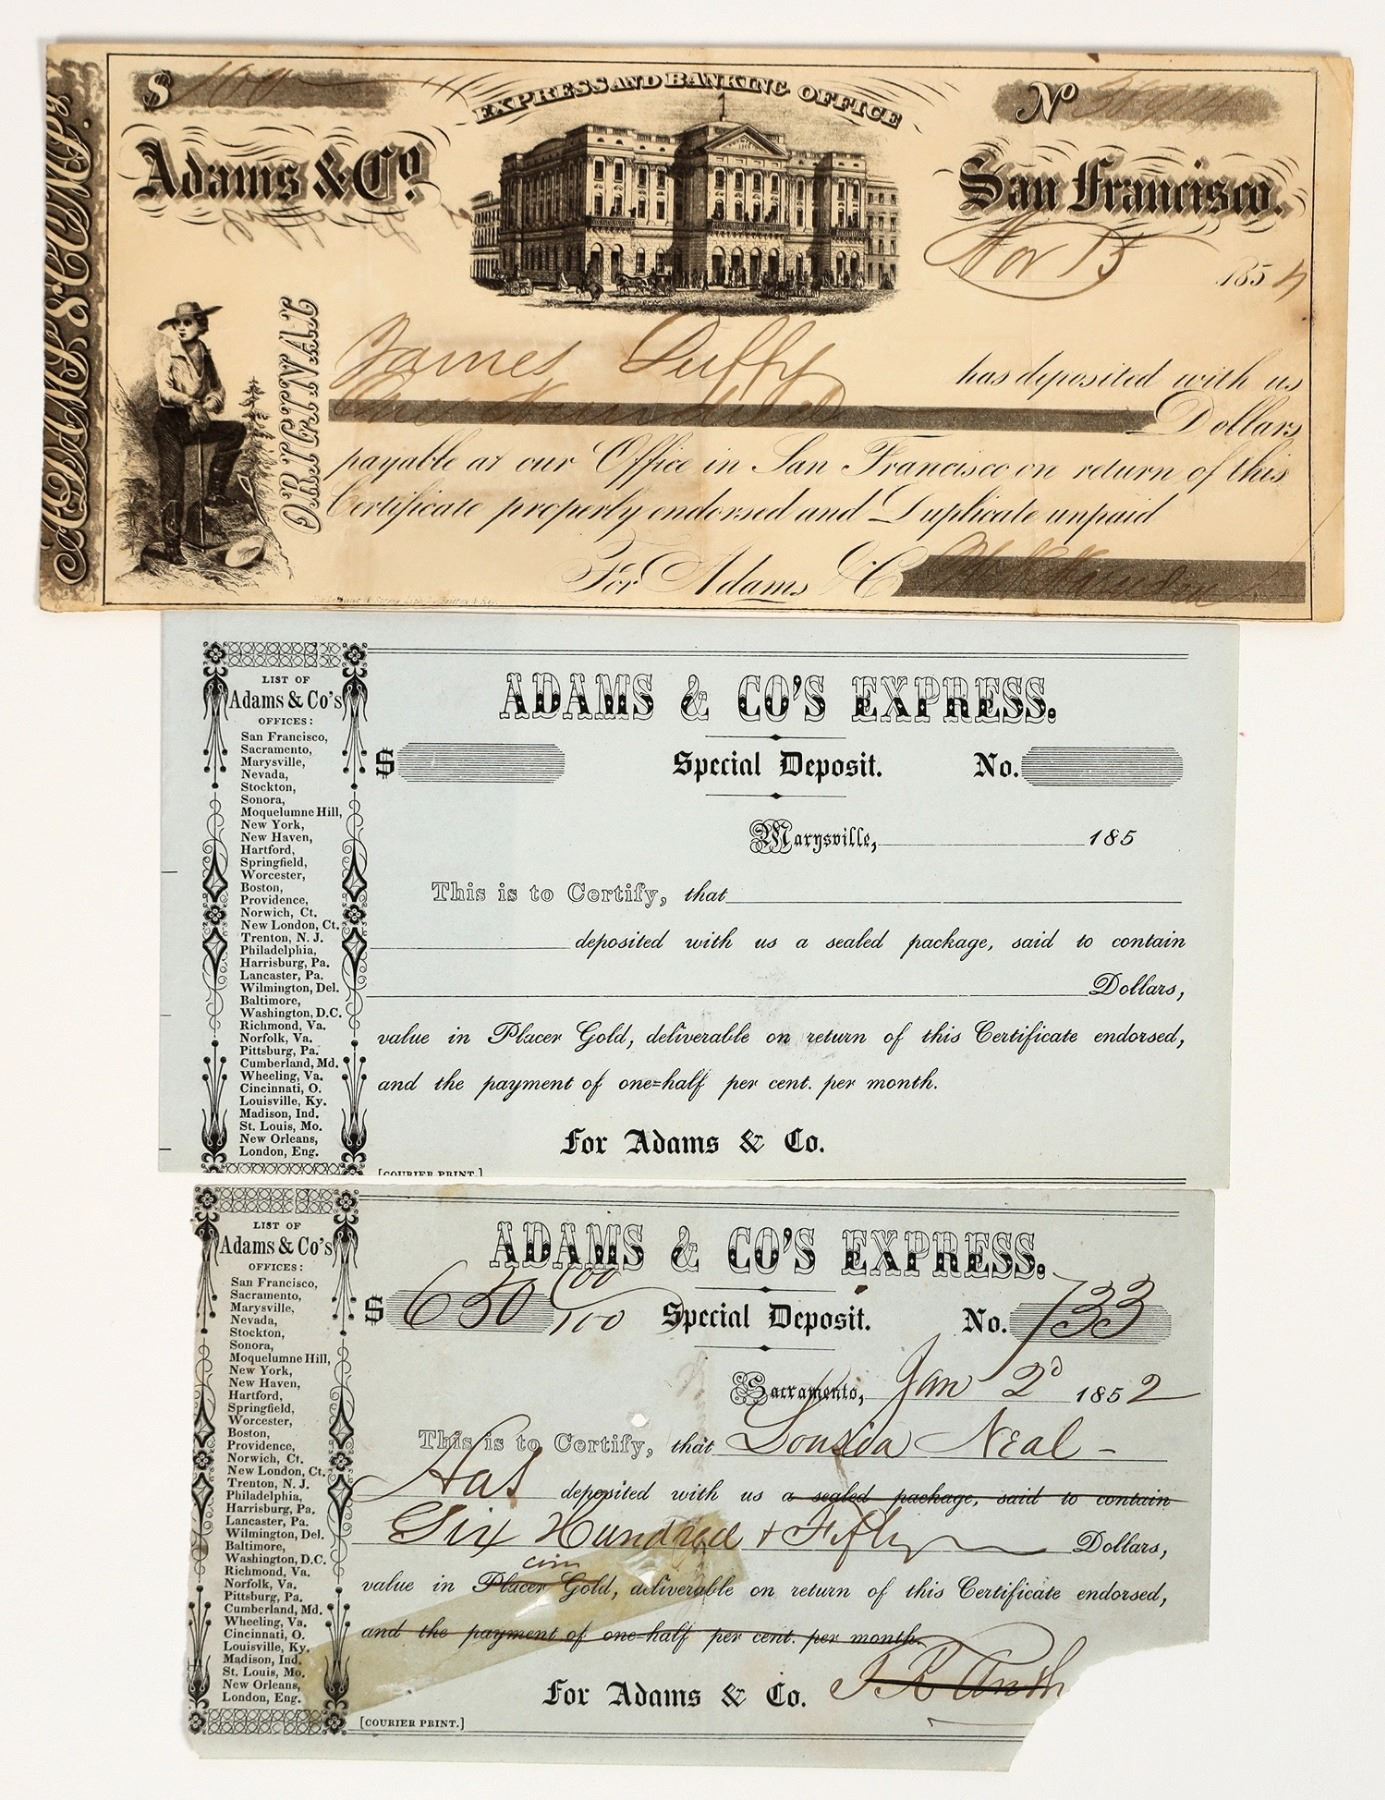 ADAMS & COMPY.
$ 100
EXPRESS AND BANKING OFFICE
No
Adams & Co.
San Francisco.
Nov 15 1854
ORIGINAL
James Duffy has deposited with us
One Hundred Dollars
payable at our Office in San Francisco on return of this
Certificate properly endorsed and Duplicate unpaid
For Adams & C
LIST OF
Adams & Co's
OFFICES:
San Francisco,
Sacramento,
Marysville,
Nevada,
Stockton,
Sonora,
Moquelumne Hill,
New York,
New Haven,
Hartford,
Springfield,
Worcester,
Boston,
Providence,
Norwich, Ct.
New London, Ct.
Trenton, N. J.
Philadelphia,
Harrisburg, Pa.
Lancaster, Pa.
Wilmington, Del.
Baltimore,
Washington, D.C.
Richmond, Va.
Norfolk, Va.
Pittsburg, Pa.
Cumberland, Md.
Wheeling, Va.
Cincinnati, O.
Louisville, Ky.
Madison, Ind.
St. Louis, Mo.
New Orleans,
London, Eng.
ADAMS & CO'S EXPRESS.
$ Special Deposit. No.
Marysville, 185
This is to Certify, that
deposited with us a sealed package, said to contain
Dollars,
value in Placer Gold, deliverable on return of this Certificate endorsed,
and the payment of one=half per cent. per month.
For Adams & Co.
[COURIER PRINT.]
LIST OF
Adams & Co's
OFFICES:
San Francisco,
Sacramento,
Marysville,
Nevada,
Stockton,
Sonora,
Moquelumne Hill,
New York,
New Haven,
Hartford,
Springfield,
Worcester,
Boston,
Providence,
Norwich, Ct.
New London, Ct.
Trenton, N. J.
Philadelphia,
Harrisburg, Pa.
Lancaster, Pa.
Wilmington, Del.
Baltimore,
Washington, D.C.
Richmond, Va.
Norfolk, Va.
Pittsburg, Pa.
Cumberland, Md.
Wheeling, Va.
Cincinnati, O.
Louisville, Ky.
Madison, Ind.
St. Louis, Mo.
New Orleans,
London, Eng.
ADAMS & CO'S EXPRESS.
$ 650 00/100 Special Deposit. No. 733
Sacramento, Jan 2d 1852
This is to Certify, that Louisa Neal
Has deposited with us a sealed package, said to contain
Six Hundred & Fifty Dollars,
coin
value in Placer Gold, deliverable on return of this Certificate endorsed,
and the payment of one=half per cent. per month.
For Adams & Co.
[COURIER PRINT.]